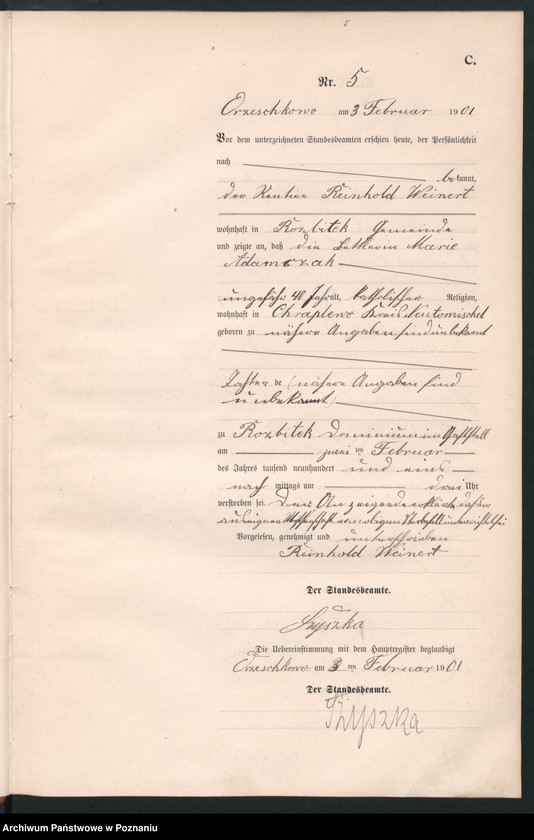 5
C.
Nr. 5
Orzeschkowo am 3 Februar 1901
Vor dem unterzeichneten Standesbeamten erschien heute, der Persönlichkeit
nach
bekannt,
der Rentier Reinhold Weinert
wohnhaft in Rozbitek Gemeinde
und zeigte an, daß die Marie
Adamczak
ungefähr 40 Jahr alt, katholischer Religion,
wohnhaft in Chraplewo Kreis Neutomischel
geboren zu nähere Angaben sind unbekannt
Tochter de (nähere Angaben sind
unbekannt)
zu Rozbitek Dominium im
am zwei ten Februar
des Jahres tausend neunhundert und eins
nach mittags um drei Uhr
verstorben sei. Der Anzeigende erklärte daß er
aus eigener Wissenschaft von obigem Sterbefall unterrichtet sei
Vorgelesen, genehmigt und unterschrieben
Reinhold Weinert
Der Standesbeamte.
Szyszka
Die Uebereinstimmung mit dem Hauptregister beglaubigt
Orzeschkowo am 3 ten Februar 1901
Der Standesbeamte.
Szyszka
Archiwum Państwowe w Poznaniu